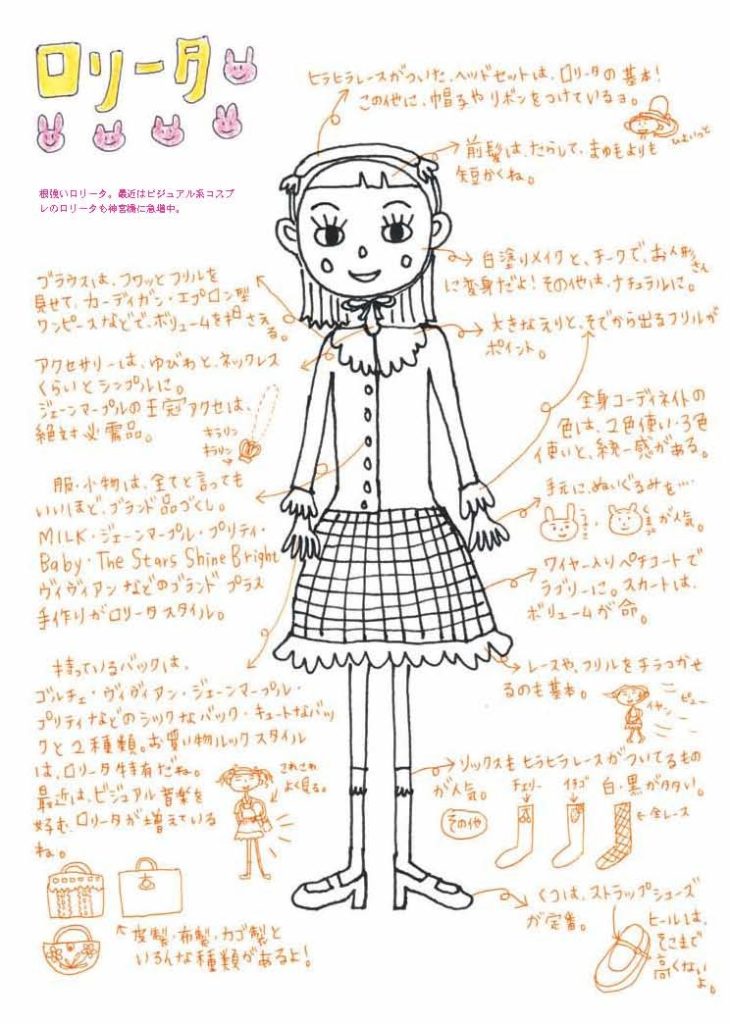 ロリータ
根強いロリータ。最近はビジュアル系コスプ
レのロリータも神宮橋に急増中。
ヒラヒラレースがついた、ヘッドセットは、ロリータの基本!
この他に、帽子やリボンをつけているヨ。
ひょいっと
前髪は、たらして、まゆもよりも
短かくね。
白塗りメイクと、チークで、お人形さん
に変身だよ!その他は、ナチュラルに。
大きなえりと、そでから出るフリルが
ポイント。
ブラウスは、フワッとフリルを
見せて、カーディガン・エプロン型
ワンピースなどで、ボリュームを押さえる。
アクセサリーは、ゆびわと、ネックレス
くらいとシンプルに。
ジェーンマープルの王冠アクセは、
絶対必需品。
キラリン
キラリン
全身コーディネイトの
色は、2色使い・3色
使いと、統一感がある。
服・小物は、全てと言っても
いいほど、ブランド品づくし。
MILK・ジェーンマープル・プリティ・
Baby・The Stars Shine Bright
ヴィヴィアンなどのブランドプラス
手作りがロリータスタイル。
手元に、ぬいぐるみを…
うさこ・くまつが人気。
ワイヤー入りペチコートで
ラブリーに。スカートは、
ボリュームが命。
レースや、フリルをチラつかせ
るのも基本。
イヤン
ピュー
持っているバックは、
ゴルチェ・ヴィヴィアン・ジェーンマープル・
プリティなどのシックなバック・キュートなバッ
クと2種類。お買い物ルックスタイル
は、ロリータ特有だね。
最近は、ビジュアル音楽を
好む、ロリータが増えている
ね。
これこれ
よく見る。
ソックスもヒラヒラレースがついてるもの
が人気。
チェリー
イチゴ
白・黒が多い。
その他
←全レース
くつは、ストラップシューズ
が定番。
ヒールは、
そこまで
高くない
よ。
皮製・布製・カゴ製と
いろんな種類があるよ!